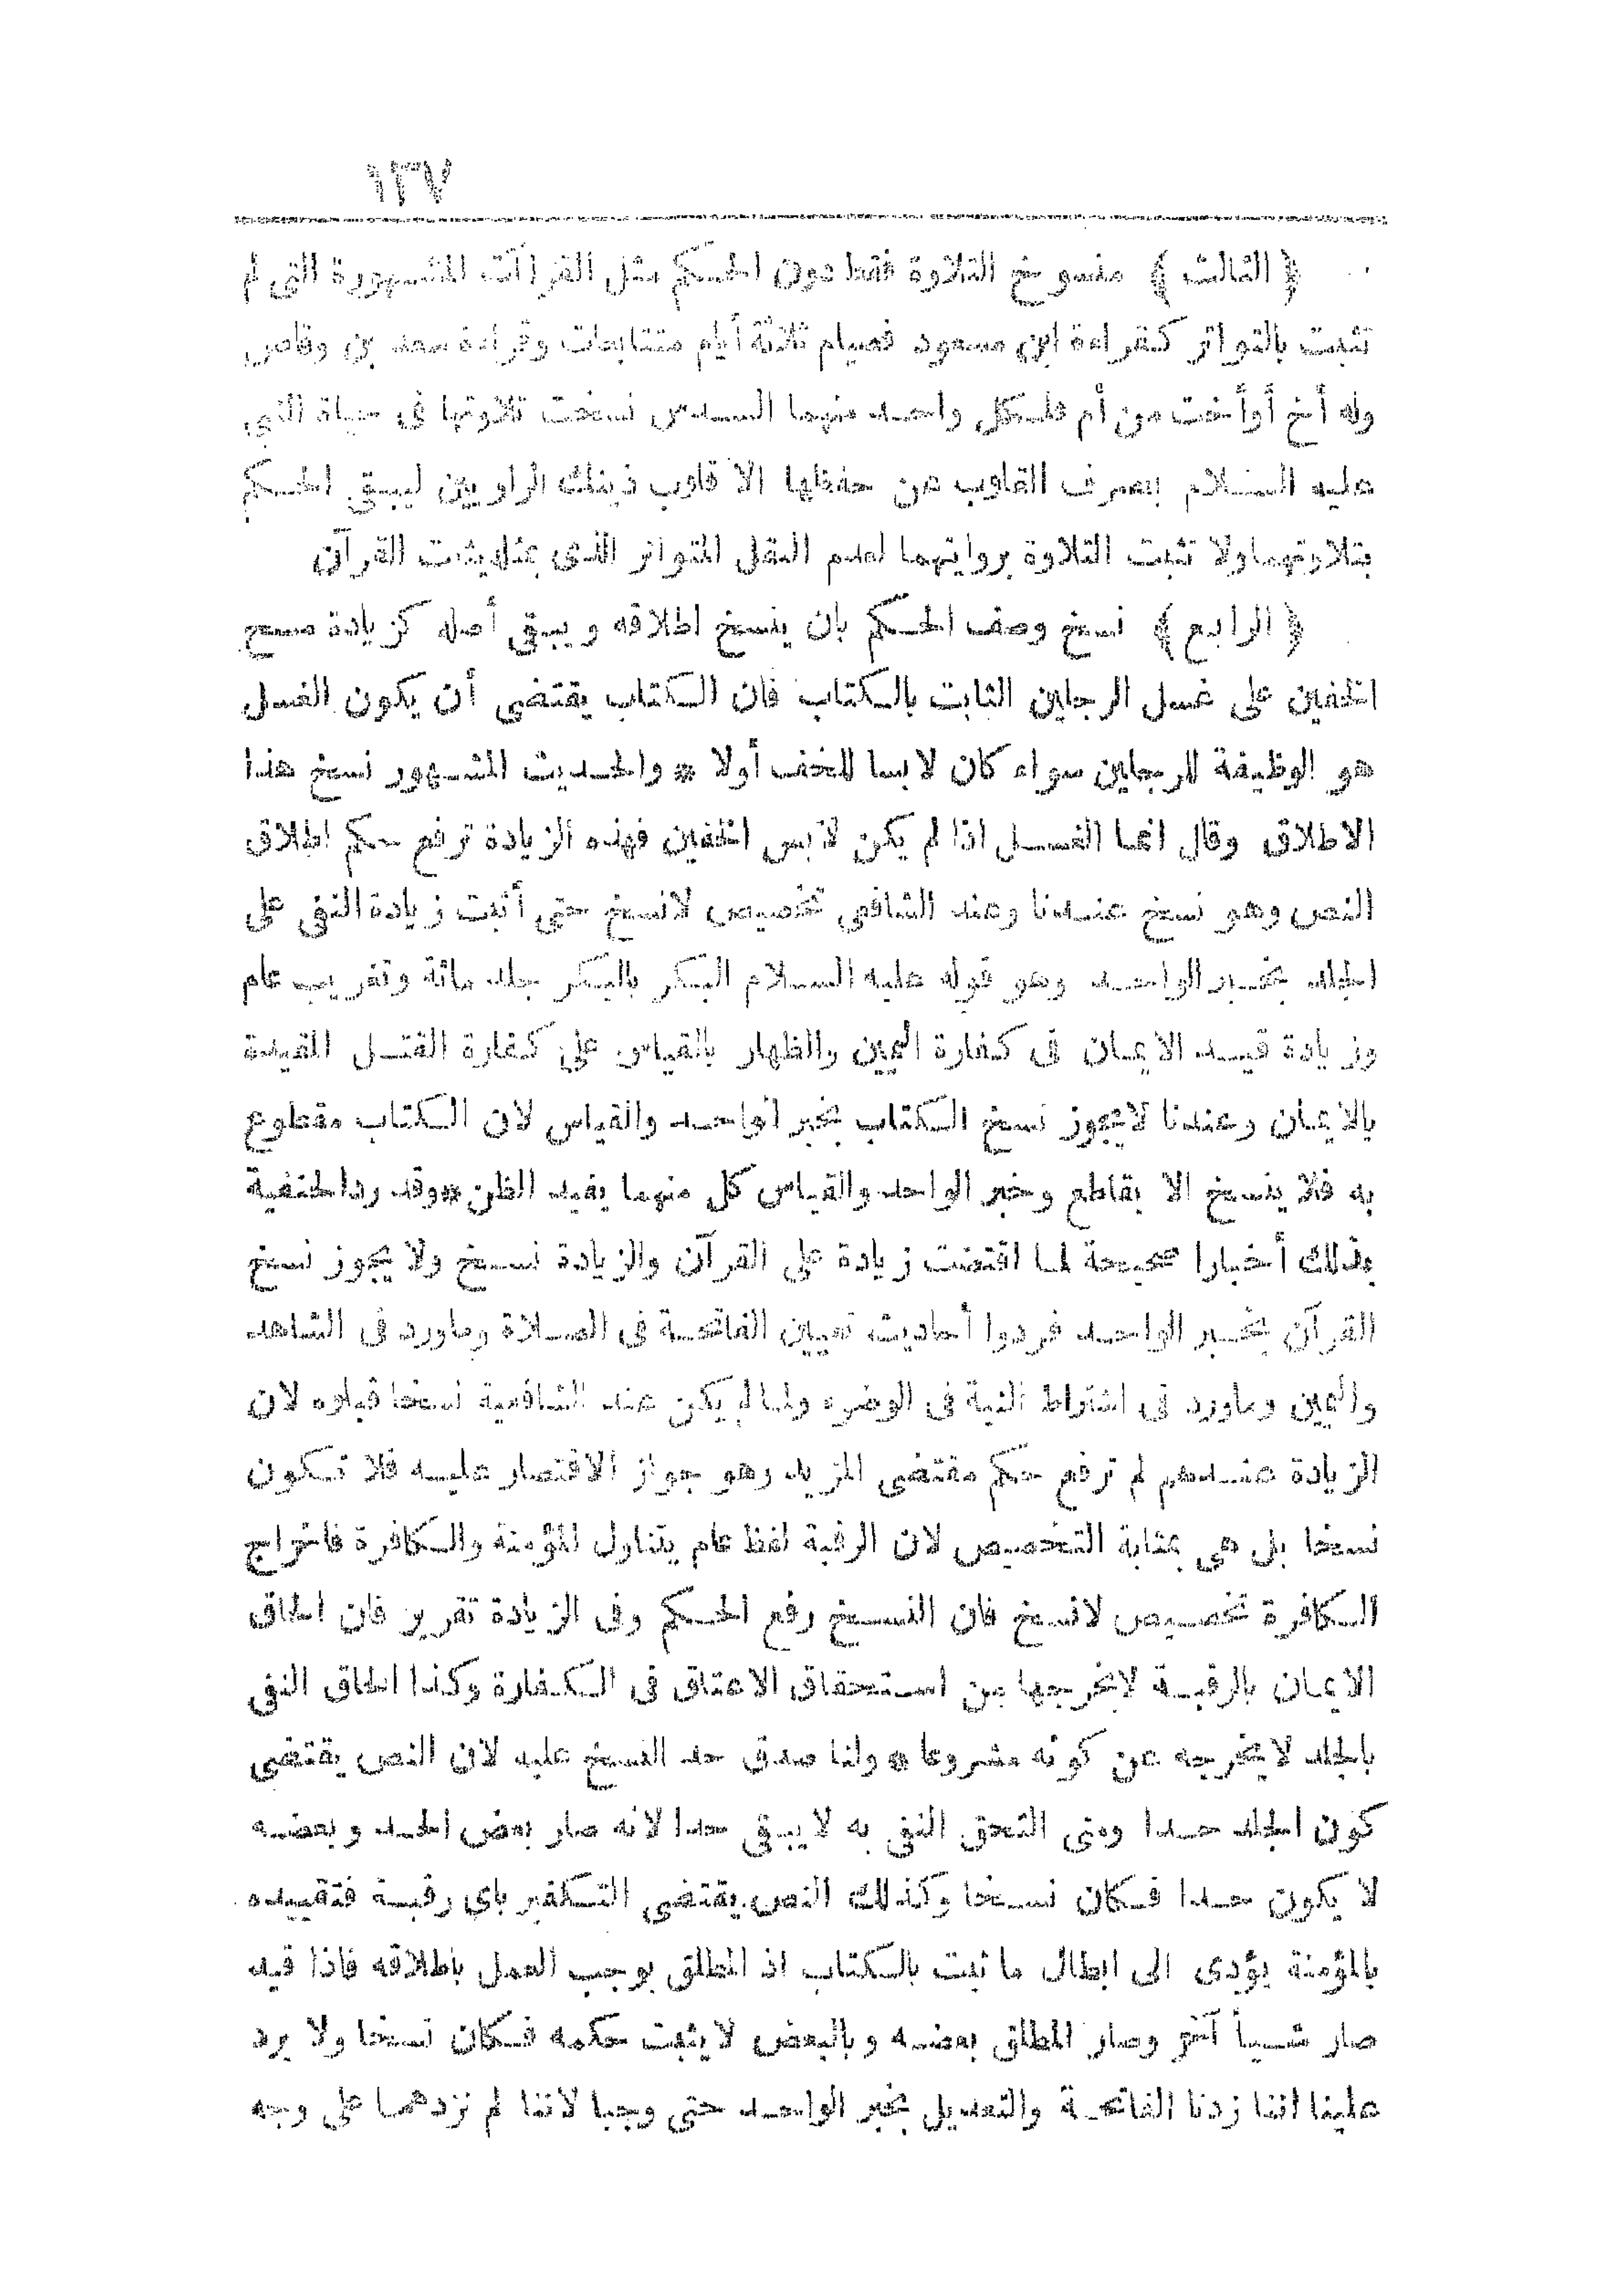 ١٣٧
﴿ الثالث ﴾ منسوخ التلاوة فقط دون الحكم مثل القرآت المشهورة التى لم
تثبت بالتواتر كقراءة ابن مسعود فصيام ثلاثة أيام متتابعات وقراءة سعد بن وقاص
وله أخ أوأخت من أم فلكل واحد منهما السدس نسخت تلاوتها فى حياة النبى
عليه السلام بصرف القلوب عن حفظها الا قلوب ذينك الراويين ليبقى الحكم
بتلاوتهما ولا تثبت التلاوة بروايتهما لعدم النقل المتواتر الذى بمثله يثبت القرآن
﴿ الرابع ﴾ نسخ وصف الحكم بان ينسخ اطلاقه ويبقى أصله كزيادة مسح
الخفين على غسل الرجلين الثابت بالكتاب فان الكتاب يقتضى أن يكون الغسل
هو الوظيفة للرجلين سواء كان لابسا للخف أولا * والحديث المشهور نسخ هذا
الاطلاق وقال انما الغسل اذا لم يكن لابس الخفين فهذه الزيادة ترفع حكم اطلاق
النص وهو نسخ عندنا وعند الشافعى تخصيص لانسخ حتى أثبت زيادة النفى على
الجلد بخبر الواحد وهو قوله عليه السلام البكر بالبكر جلد مائة وتغريب عام
وزيادة قيد الايمان فى كفارة اليمين والظهار بالقياس على كفارة القتل المقيدة
بالايمان وعندنا لايجوز نسخ الكتاب بخبر الواحد والقياس لان الكتاب مقطوع
به فلا ينسخ الا بقاطع وخبر الواحد والقياس كل منهما يفيد الظن*وقد ردالحنفية
بذلك أخبارا صحيحة لما اقتضت زيادة على القرآن والزيادة نسخ ولا يجوز نسخ
القرآن بخبر الواحد فردوا أحاديث تعيين الفاتحة فى الصلاة وماورد فى الشاهد
واليمين وماورد فى اشتراط النية فى الوضوء ولما لم يكن عند الشافعية نسخا قبلوه لان
الزيادة عندهم لم ترفع حكم مقتضى المزيد وهو جواز الاقتصار عليه فلا تكون
نسخا بل هى بمثابة التخصيص لان الرقبة لفظ عام يتناول المؤمنة والكافرة فاخراج
الكافرة تخصيص لانسخ فان النسخ رفع الحكم وفى الزيادة تقرير فان الحاق
الايمان بالرقبة لايخرجها من استحقاق الاعتاق فى الكفارة وكذا الحاق النفى
بالجلد لايخرجه عن كونه مشروعا * ولنا صدق حد النسخ عليه لان النص يقتضى
كون الجلد حدا ومتى التحق النفى به لا يبقى حدا لانه صار بعض الحد وبعضه
لا يكون حدا فكان نسخا وكذلك النص يقتضى التكفير باى رقبة فتقييده
بالمؤمنة يؤدى الى ابطال ما ثبت بالكتاب اذ المطلق يوجب العمل باطلاقه فاذا قيد
صار شيأ آخر وصار المطلق بعضه وبالبعض لا يثبت حكمه فكان نسخا ولا يرد
علينا اننا زدنا الفاتحة والتعديل بخبر الواحد حتى وجبا لاننا لم نزدهما على وجه